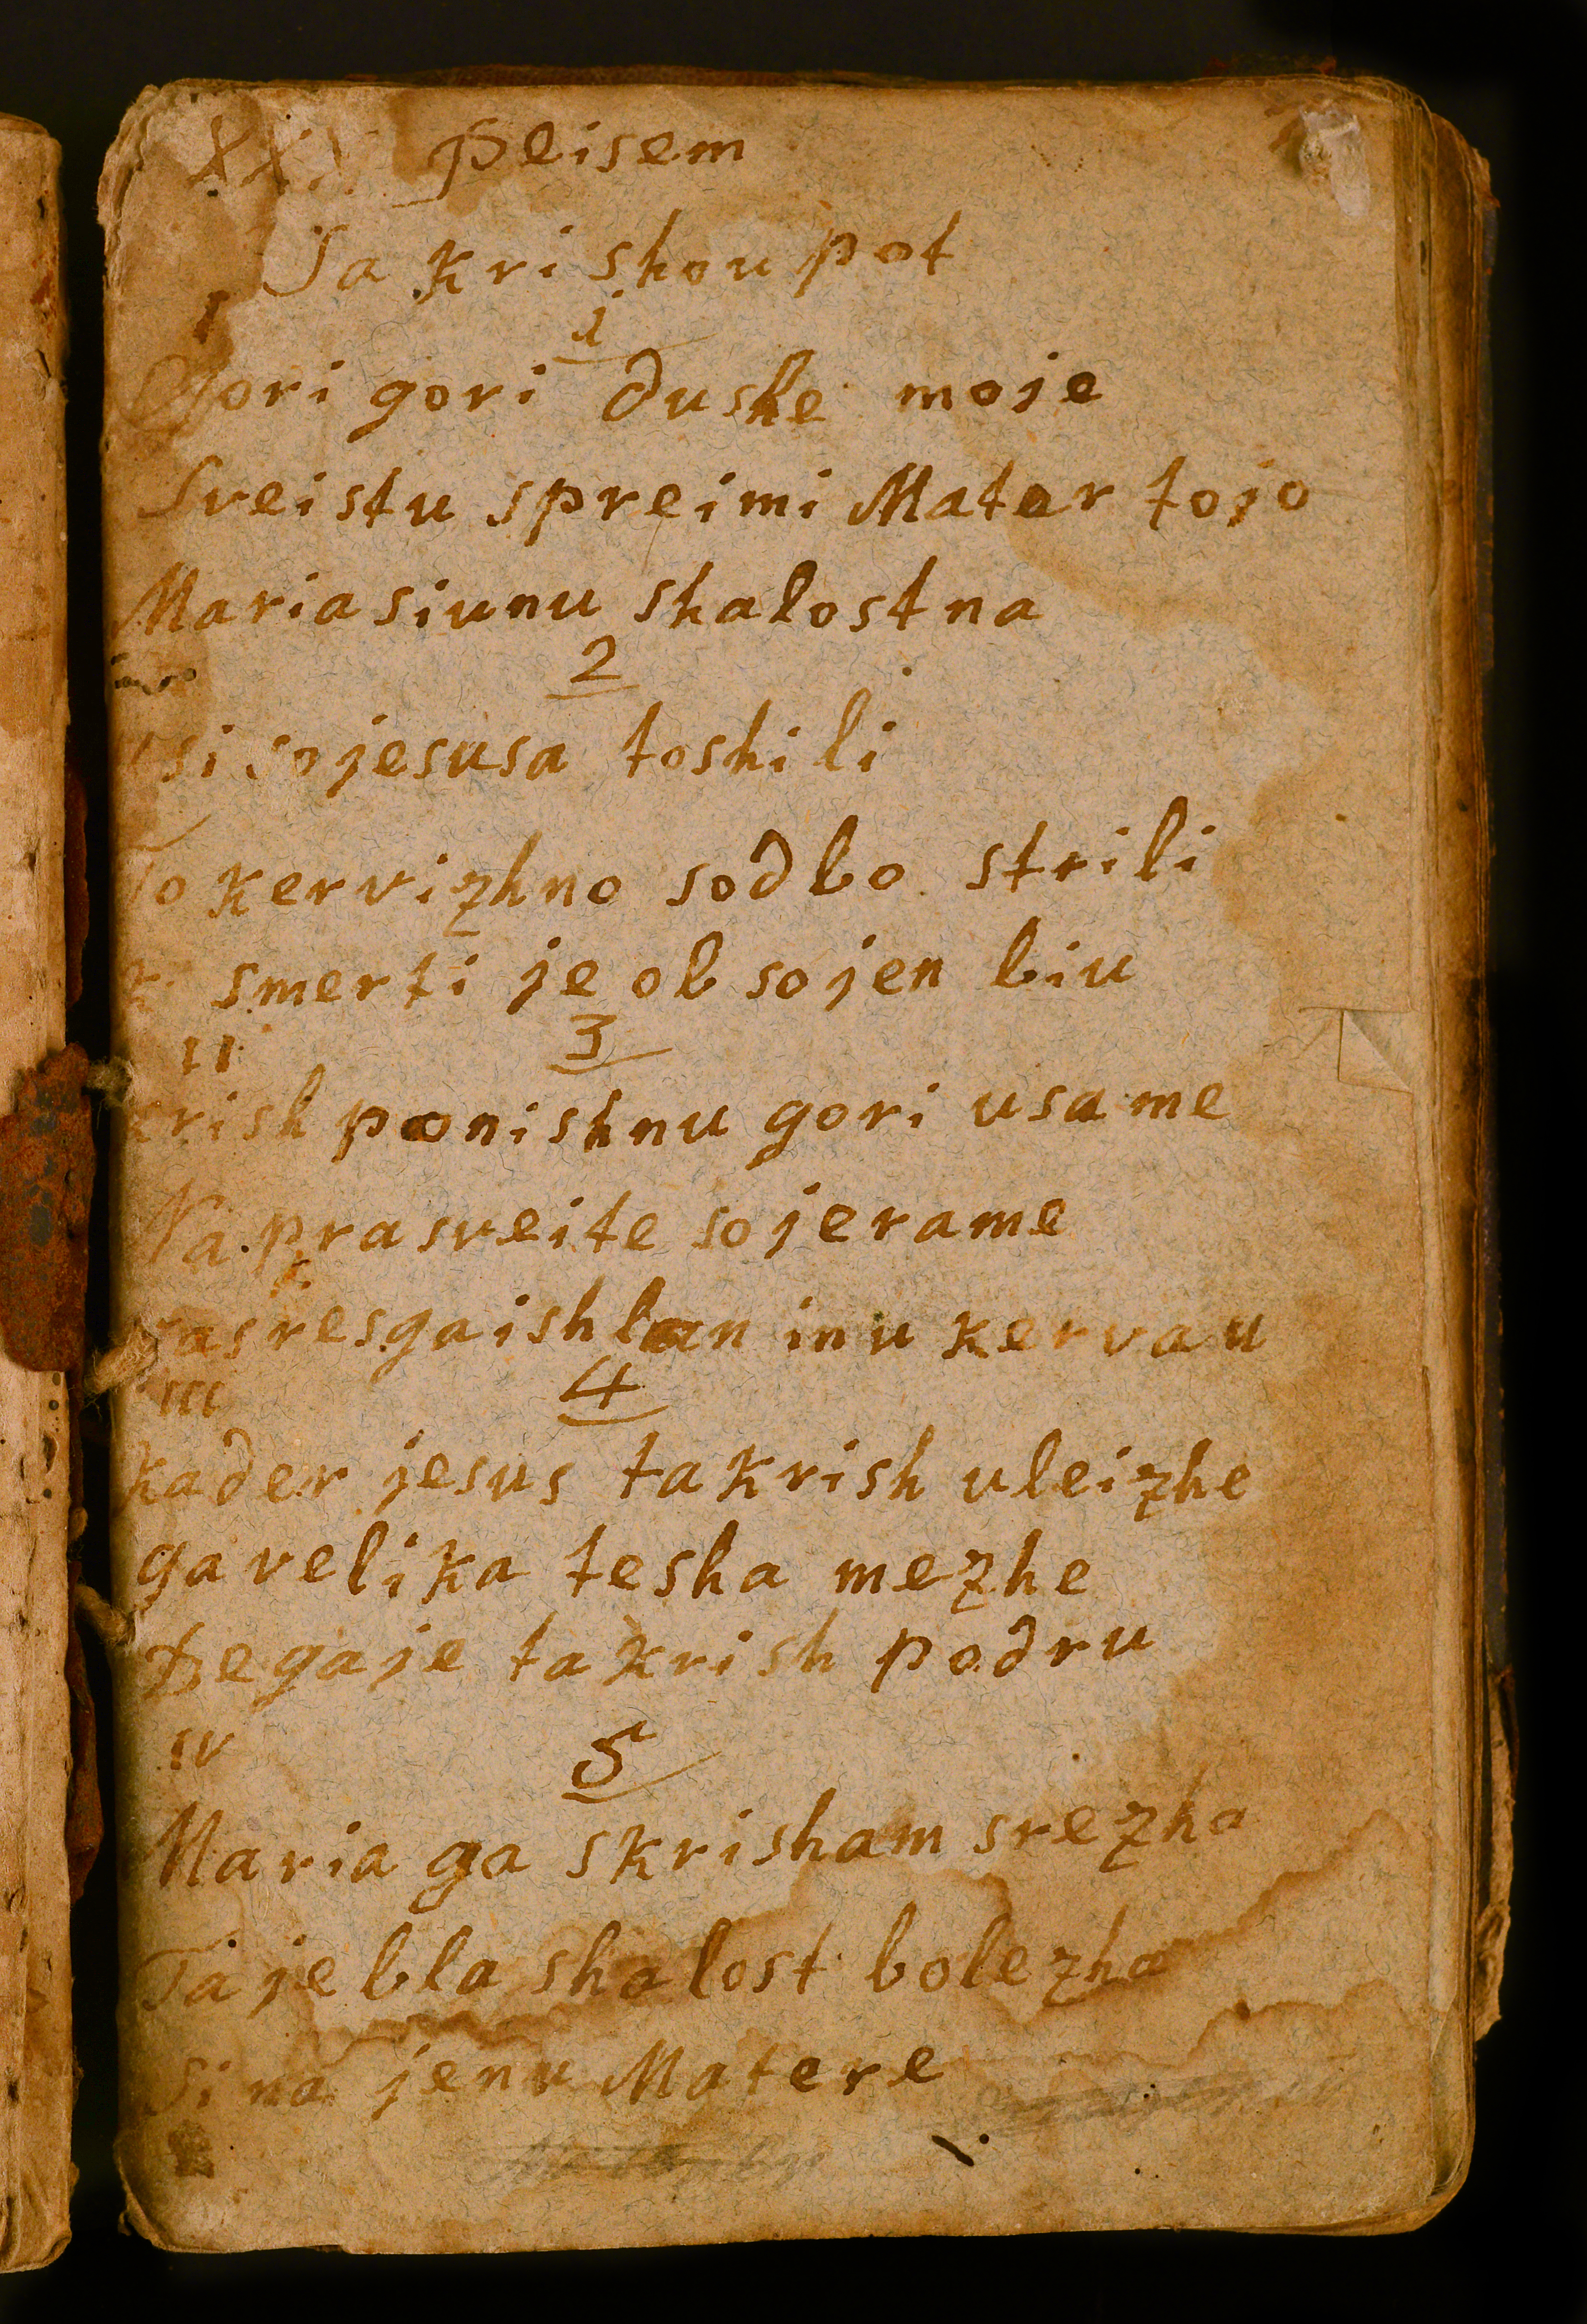 peisem
Ta kri shou pot
I
1
Gori gori dushe moje
Sveistu spreimi Mater tojo
Maria siunu shalostna
2
Usi so jesusa toshili
To kervizhno sodbo strili
K smerti je ob sojen biu
II
3
krish ponishnu gori usame
Na prasveite so jerame
vas resgaishlan inu kervau
III
4
kader jesus ta krish uleizhe
ga velika tesha mezhe
Be ga je ta krish podru
IV
5
Maria ga skrisham srezha
Ta je bla shalost bolezha
Si na jenu Matere